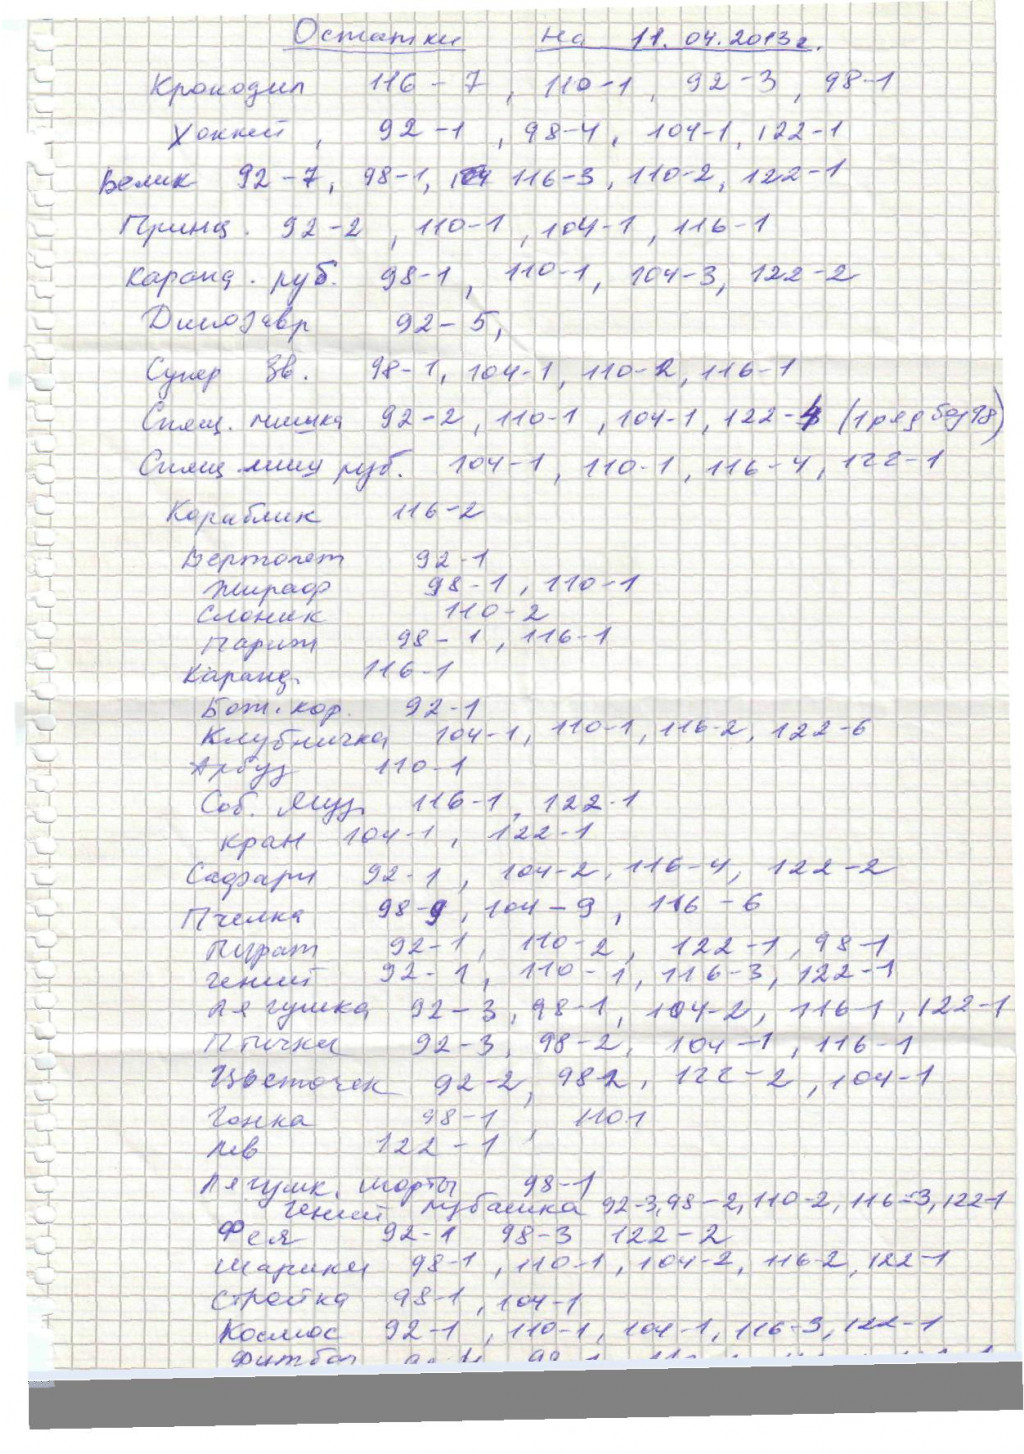 Остатки на 11.04.2013г.
Крокодил 116-7, 110-1, 92-3, 98-1
Хоккей, 92-1, 98-4, 104-1, 122-1
Велик 92-7, 98-1, 116-3, 110-2, 122-1
Принц. 92-2, 110-1, 104-1, 116-1
Каранд. руб. 98-1, 110-1, 104-3, 122-2
Динозавр 92-5,
Супер Зв. 98-1, 104-1, 110-2, 116-1
Спящ. мишка 92-2, 110-1, 104-1, 122-4 (1 ряд без 98)
Спящ миш руб. 104-1, 110-1, 116-4, 122-1
Кораблик 116-2
Вертолет 92-1
Жираф 98-1, 110-1
Слоник 110-2
Париж 98-1, 116-1
Каранд. 116-1
Бож. кор. 92-1
Клубничка 104-1, 110-1, 116-2, 122-6
Арбуз 110-1
Соб. 116-1, 122-1
кран 104-1, 122-1
Сафари 92-1, 104-2, 116-4, 122-2
Пчелка 98-9, 104-9, 116-6
Пират 92-1, 110-2, 122-1, 98-1
Гений 92-1, 110-1, 116-3, 122-1
Лягушка 92-3, 98-1, 104-2, 116-1, 122-1
Птички 92-3, 98-2, 104-1, 116-1
Цветочек 92-2, 98-2, 122-2, 104-1
Гонка 98-1, 110-1
Лев 122-1
Лягушк. шорты 98-1
Гений рубашка 92-3, 98-2, 110-2, 116-3, 122-1
Фея 92-1 98-3 122-2
Шарики 98-1, 110-1, 104-2, 116-2, 122-1
Стройка 98-1, 104-1
Космос 92-1, 110-1, 104-1, 116-3, 122-1